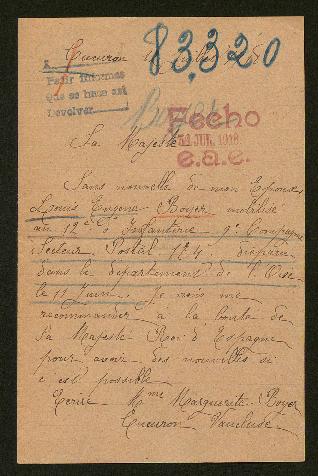 Cucuron
83,320
Pedir informes
Que se hace así
Devolver
Boyer
Fecho
JUL. 1918
e.a.e.
Sa Majesté
Sans nouvelle de mon Epoux
Louis Eugene Boyer mobilisé
au 12e d'Infanterie 9e Compagnie
Secteur Postal 124 disparu
dans le departement de l'Oise
le 11 Juin. Je viens me
recommander a la bonté de
Sa Majesté Roi d'Espagne
pour avoir des nouvelles si
c'est possible
Ecrire Mme Marguerite Boyer
Cucuron Vaucluse